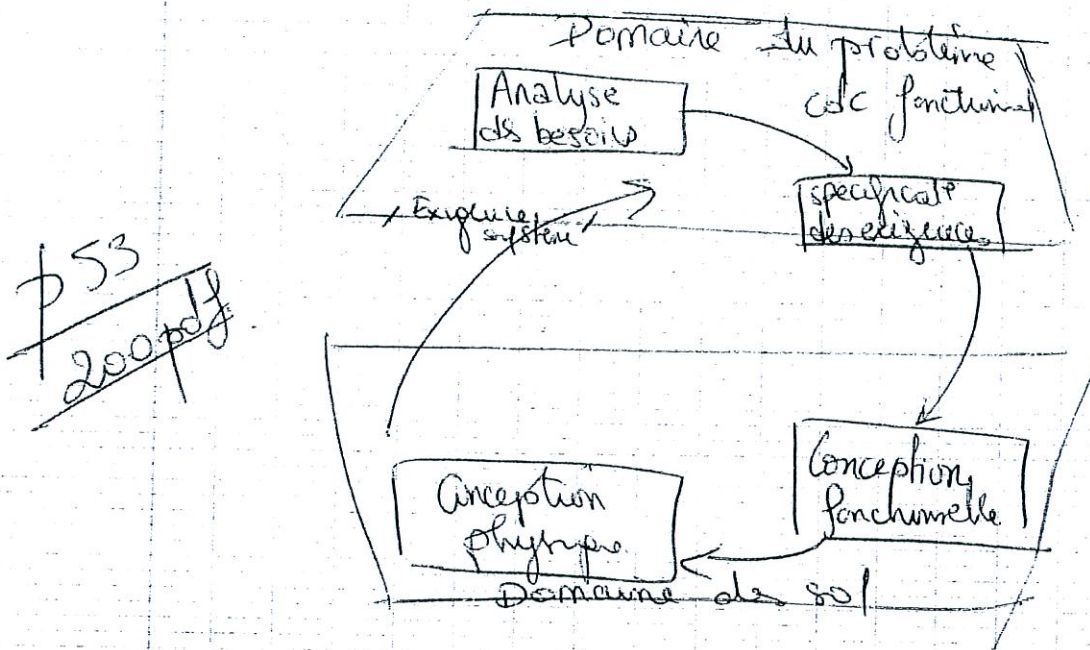 Domaine du problème
cdc fonctionnel
Analyse
ds besoins
spécificat°
des exigences
/ Exigences
système /
p 53
200pdf
Conception
fonctionnelle
Conception
physique
Domaine des sol